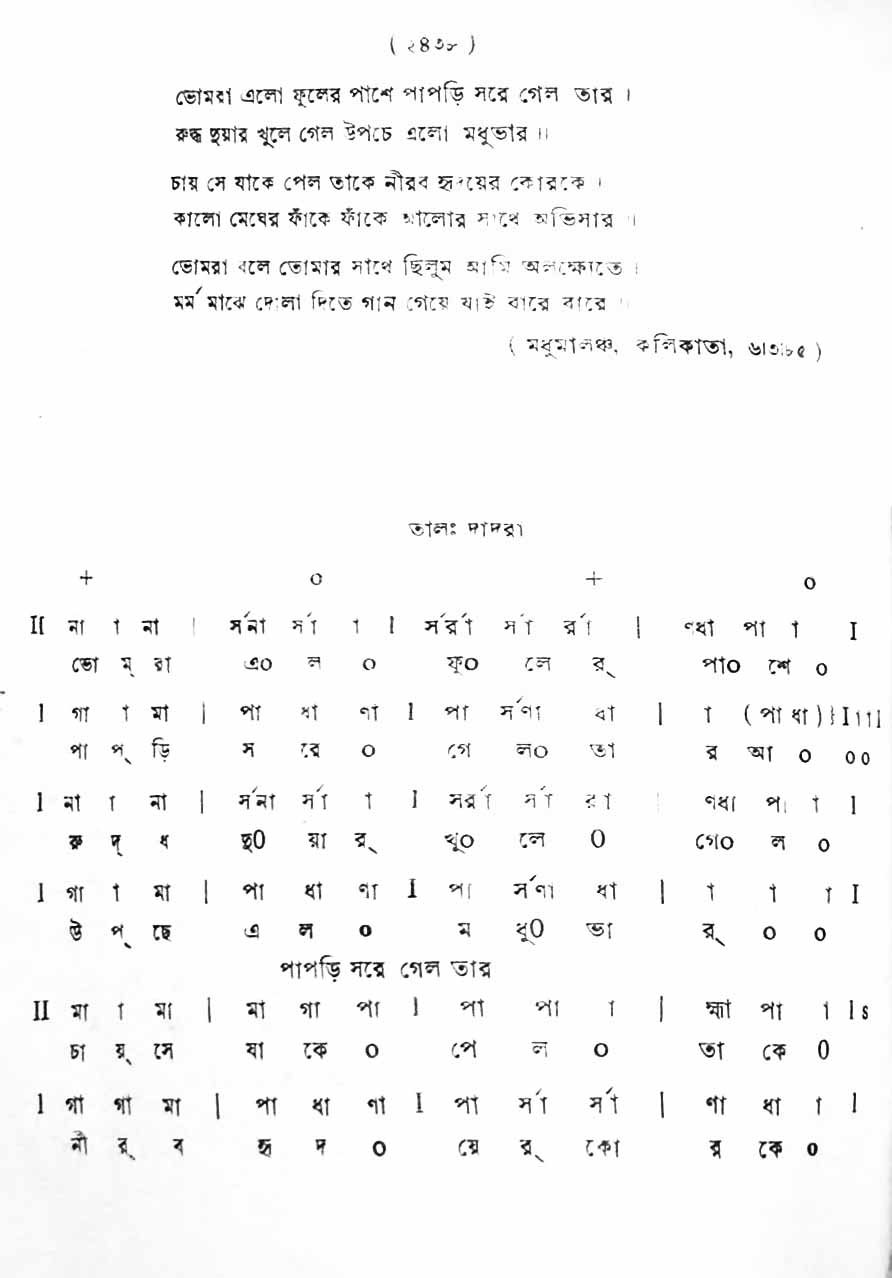 ( ২৪৩৮ )
ভোমরা এলো ফুলের পাশে পাপড়ি সরে গেল তার ।
রুদ্ধ দুয়ার খুলে গেল উপচে এলো মধুভার ॥
চায় সে যাকে পেল তাকে নীরব হৃদয়ের কোরকে ।
কালো মেঘের ফাঁকে ফাঁকে আলোর সাথে অভিসার ॥
ভোমরা বলে তোমার সাথে ছিলুম আমি অলক্ষ্যেতে ।
মর্ম মাঝে দোলা দিতে গান গেয়ে যাই বারে বারে ॥
( মধুমালঞ্চ, কলিকাতা, ৬।৩।৮৫ )
তালঃ দাদরা
+ ০ + ০
II না া না | র্সনা র্সা া I র্সর্রা র্সা র্রা | ণধা পা া I
ভো ম্ রা এ০ ল ০ ফু০ লে র্ পা০ শে ০
I গা া মা | পা ধা ণা I পা র্সণা ধা | া (পা ধা)} I াা I
পা প্ ড়ি স রে ০ গে ল০ তা র আ ০ ০০
I না া না | র্সনা র্সা া I সর্রা র্সা রা | ণধা পা া I
রু দ্ ধ দু০ য়া র্ খু০ লে ০ গে০ ল ০
I গা া মা | পা ধা ণা I পা র্সণা ধা | া া া I
উ প্ ছে এ ল ০ ম ধু০ ভা র্ ০ ০
পাপড়ি সরে গেল তার
II মা া মা | মা গা পা I পা পা া | হ্মা পা া I s
চা য়্ সে যা কে ০ পে ল ০ তা কে ০
I গা গা মা | পা ধা ণা I পা র্সা র্সা | ণা ধা া I
নী র্ ব হৃ দ ০ য়ে র্ কো র কে ০